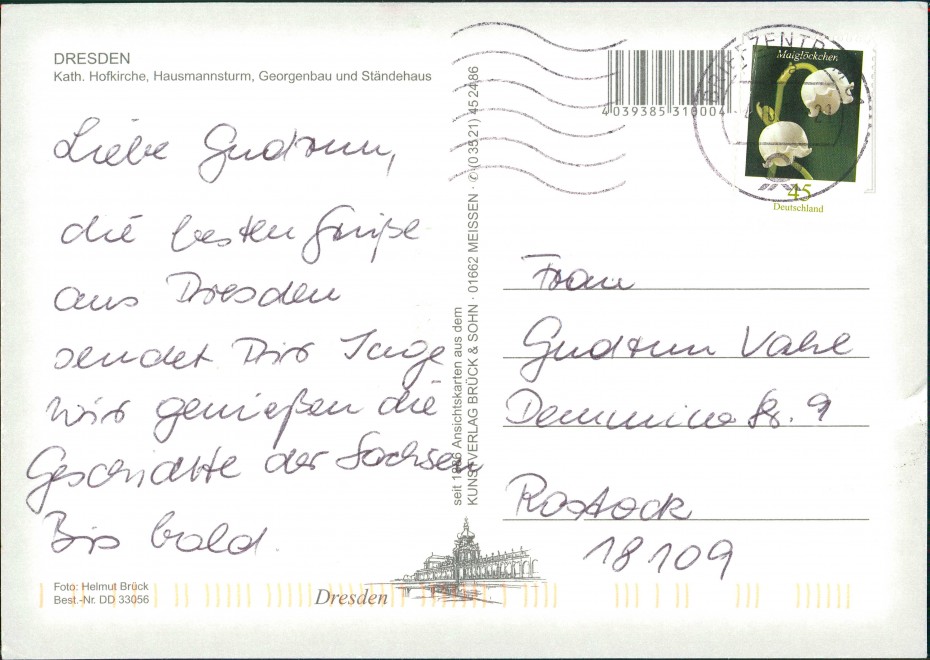 DRESDEN
Kath. Hofkirche, Hausmannsturm, Georgenbau und Ständehaus
Liebe Gudrun,
die besten Grüße
aus Dresden
sendet Dir Inge
wir genießen die
Geschichte der Sachsen
Bis bald.
Foto: Helmut Brück
Best.-Nr. DD 33056
Dresden
seit 1885 Ansichtskarten aus dem
KUNSTVERLAG BRÜCK & SOHN · 01662 MEISSEN · ✆ (0 35 21) 45 24 86
4 039385 310004
BRIEFZENTRUM
Maiglöckchen
45
Deutschland
Frau
Gudrun Vahl
Demminer Str. 9
Rostock
18109